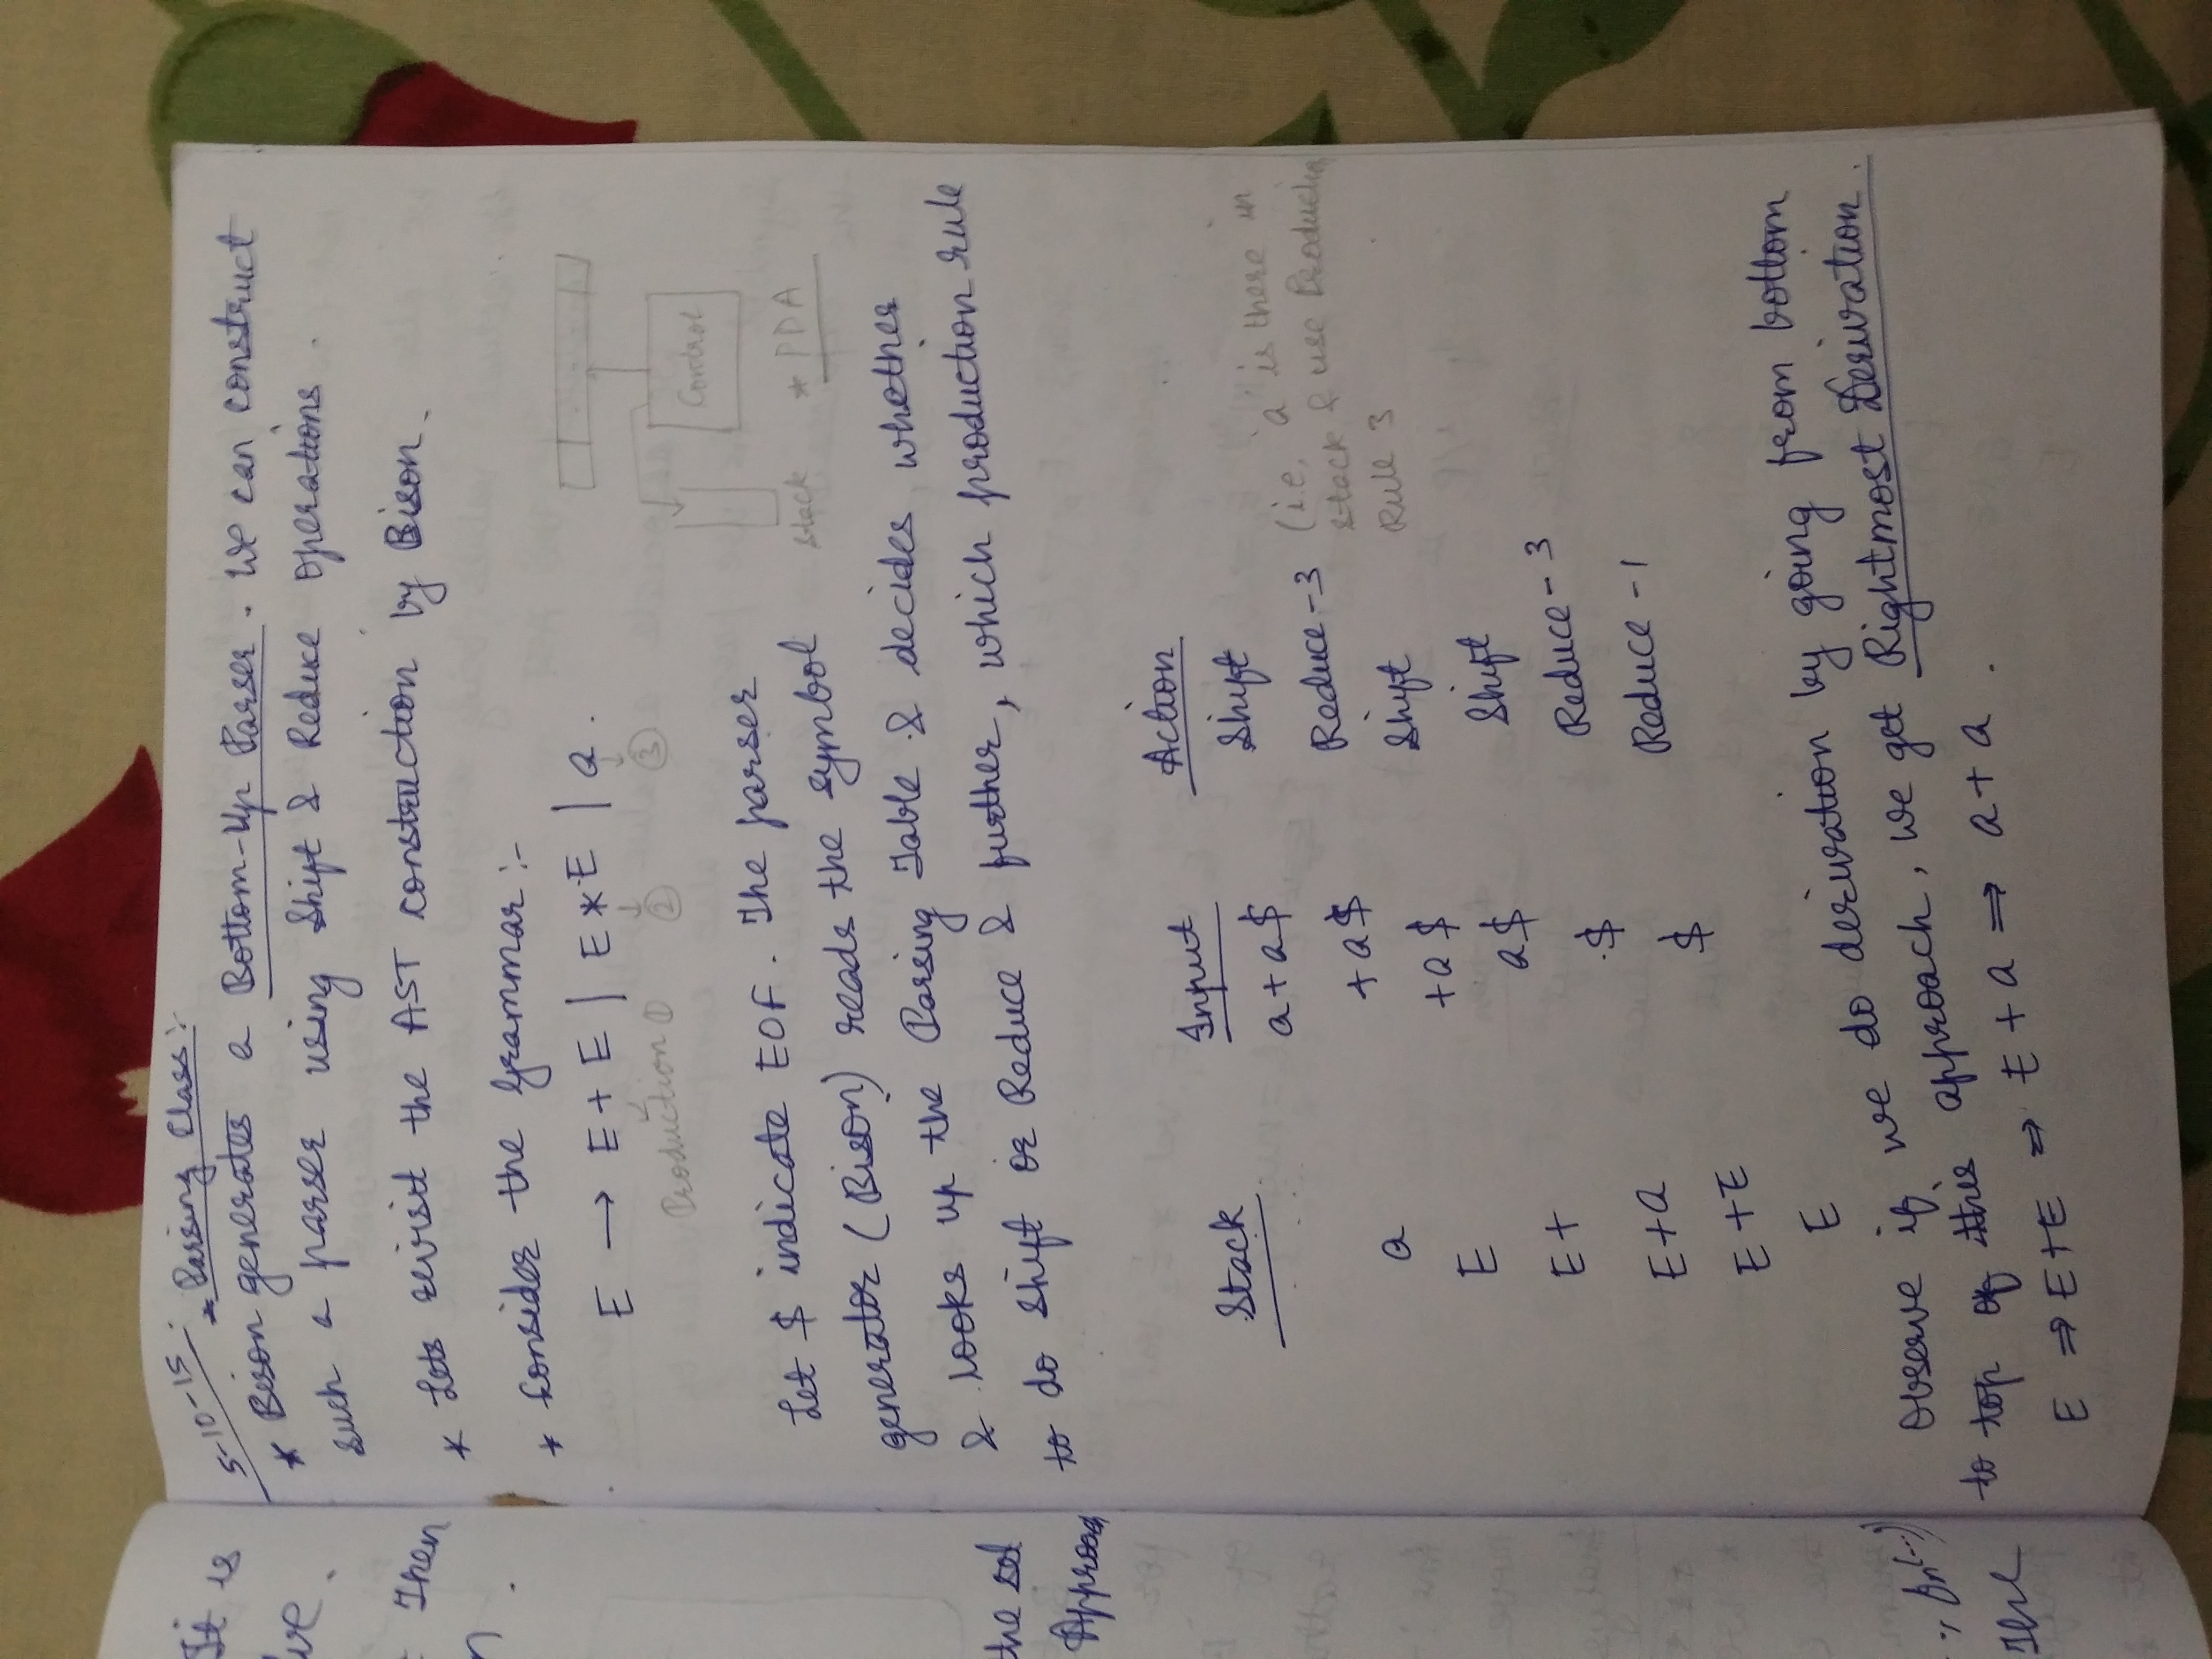 5-10-15
* Parsing Class:
* Bison generates a Bottom-Up Parser. We can construct
such a parser using Shift & Reduce operations.
* Lets revisit the AST construction by Bison.
* Consider the grammar :-
E → E+E | E*E | a.
Production ① ② ③
Control
Stack
* PDA
Let $ indicate EOF. The parser
generator (Bison) reads the symbol
& looks up the Parsing Table & decides whether
to do shift or Reduce & further, which production rule
Stack Input Action
a+a$ Shift
a +a$ Reduce-3 (i.e, a is there in
stack & use Production
Rule 3
E +a$ Shift
E+ a$ Shift
E+a $ Reduce-3
E+E $ Reduce-1
E
Observe if we do derivation by going from bottom
to top of this approach, we get Rightmost Derivation.
E ⇒ E+E ⇒ E+a ⇒ a+a.
It is
Then
the set
Approach